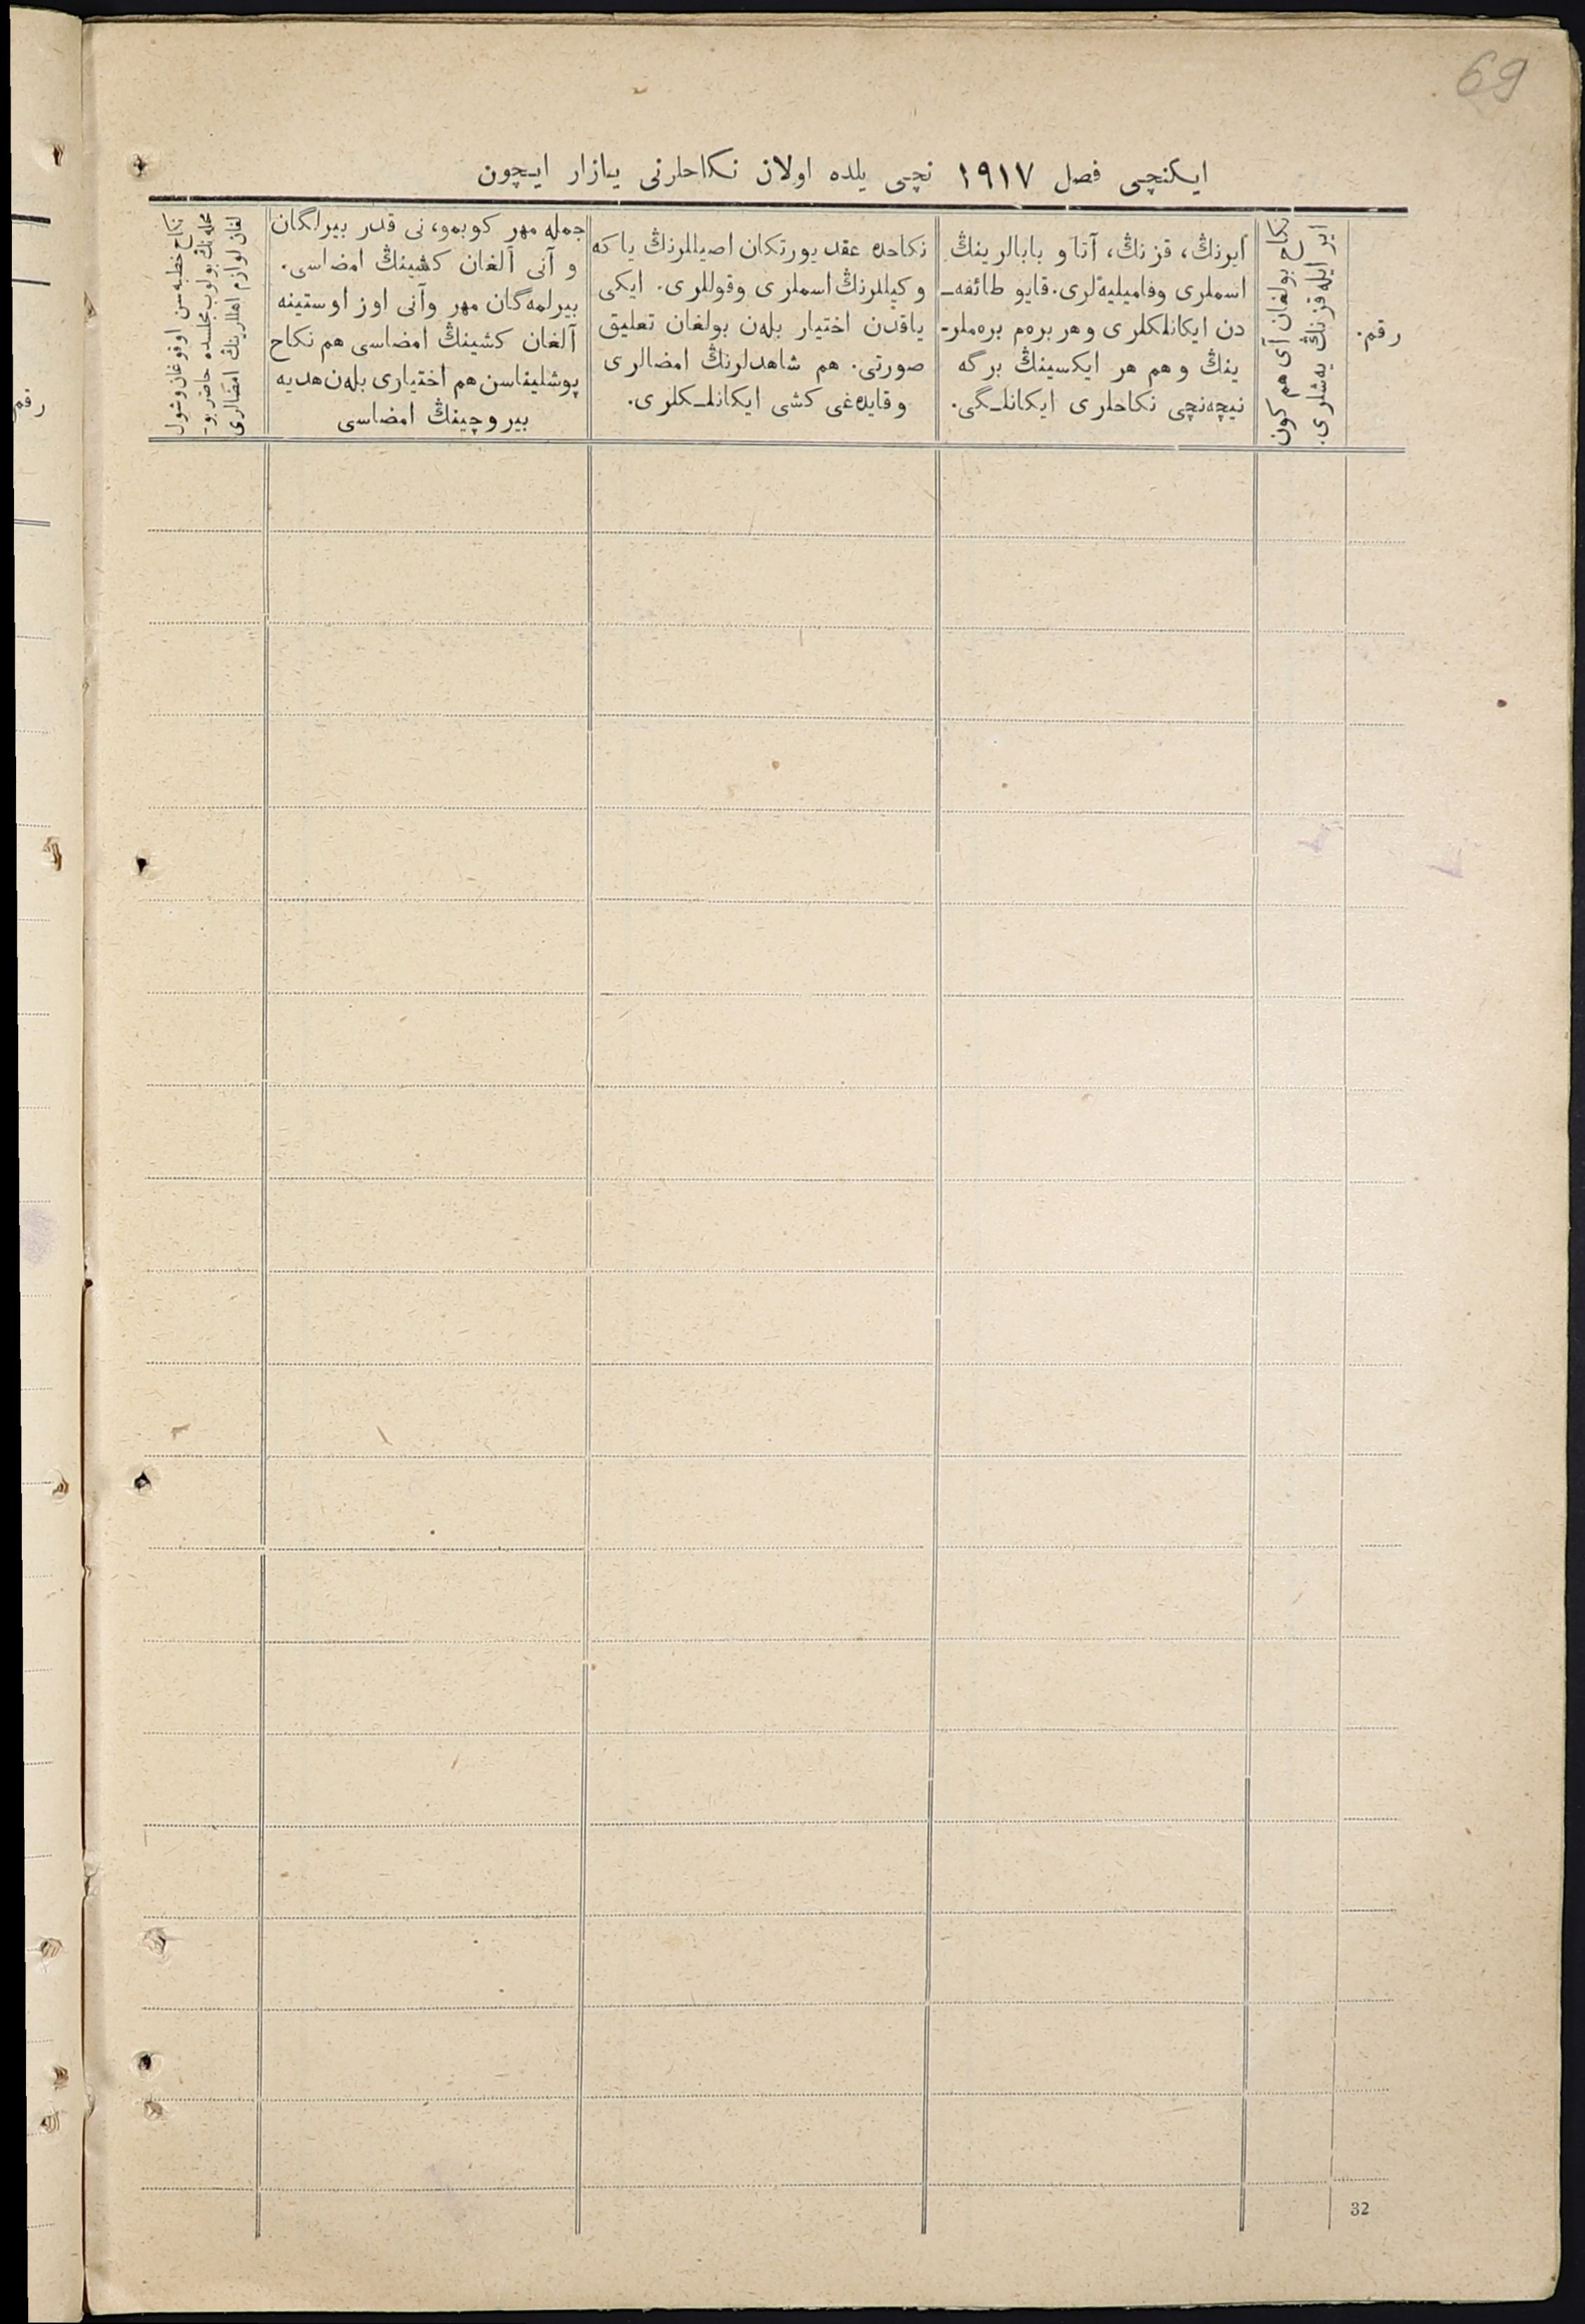 69
ایكنچی فصل ١٩١٧ نچی یلده اولان نكاحلرنی یازار ایچون
رقم.
ایر ایله قز نڭ یه‌شلری.
نكاح بولغان آی هم كون
ایرنڭ، قزنڭ، آتا و بابالرینڭ
اسملری وفامیلیه‌لری. قایو طائفه‌ـ
دن ایكانلكلری وهر بره‌م بره‌ملرـ
ینڭ وهم هر ایكسینڭ برگه
نیچه‌نچی نكاحلری ایكانلـگی.
نكاحده عقد یورتكان اصیللرنڭ یاكه
وكیللرنڭ اسملری وقوللری. ایكی
یاقدن اختیار بله‌ن بولغان تعلیق
صورتی. هم شاهدلرنڭ امضالری
وقایده‌غی كشی ایكانلـكلری.
جمله مهر كوبمو، نی قدر بیرلگان
و آنی آلغان كشینڭ امضاسی.
بیرلمه‌گان مهر وآنی اوز اوستینه
آلغان كشینڭ امضاسی هم نكاح
پوشلیناسن هم اختیاری بله‌ن هدیه
بیروچینڭ امضاسی
نكاح خطبه‌سن اوقوغان وشول
محله‌نڭ بولوب مجلسده حاضر بوـ
لغان لوازم اهللرینڭ امضالری
رقم
32